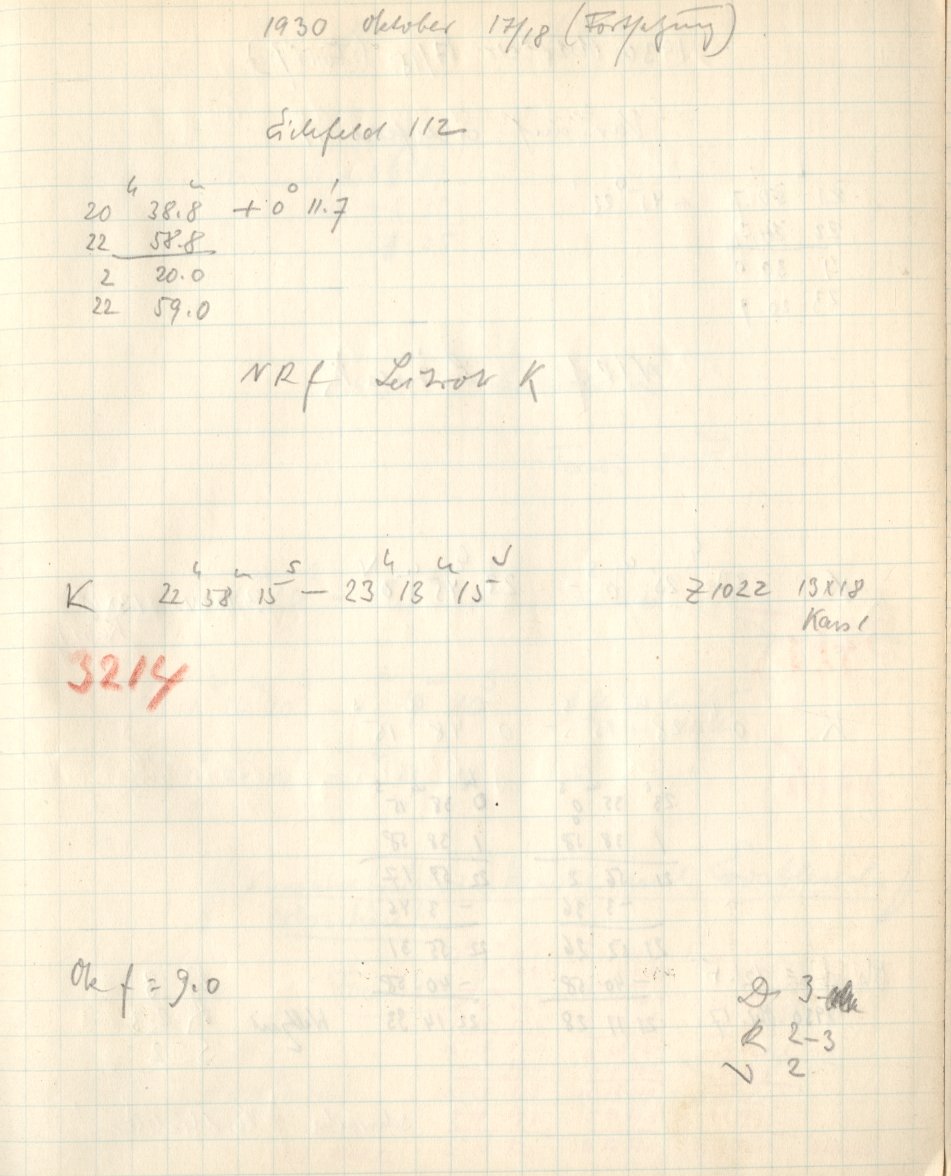 1930 Oktober 17/18 (Fortsetzung)
Eichfeld 112
20ʰ 38.8ᵐ + 0° 11.7'
22 58.8
2 20.0
22 59.0
NRf Leitrohr K
K 22ʰ 58ᵐ 15ˢ — 23ʰ 13ᵐ 15ˢ Z 1022 13x18
Kass 1
3214
Ok f = 9.0
D 3
R 2-3
V 2